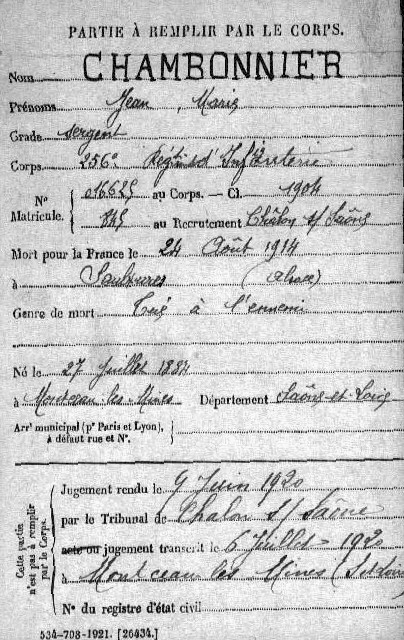 PARTIE À REMPLIR PAR LE CORPS.
Nom CHAMBONNIER
Prénoms Jean, Marie
Grade Sergent
Corps 256e Régt d'Infanterie
N° Matricule. { 016625 au Corps. — Cl. 1904
845 au Recrutement Châlon s/ Saône
Mort pour la France le 24 Août 1914
à Saulxures (Alsace)
Genre de mort Tué à l'ennemi
Né le 27 Juillet 1884
à Montceau-les-Mines Département Saône-et-Loire
Arrt municipal (pr Paris et Lyon), à défaut rue et N°. {
Cette partie n'est pas à remplir par le Corps. {
Jugement rendu le 9 Juin 1920
par le Tribunal de Chalon S/ Saône
acte ou jugement transcrit le 6 Juillet 1920
à Montceau les Mines (S.-et-Loire)
N° du registre d'état civil
534-708-1921. [26434.]